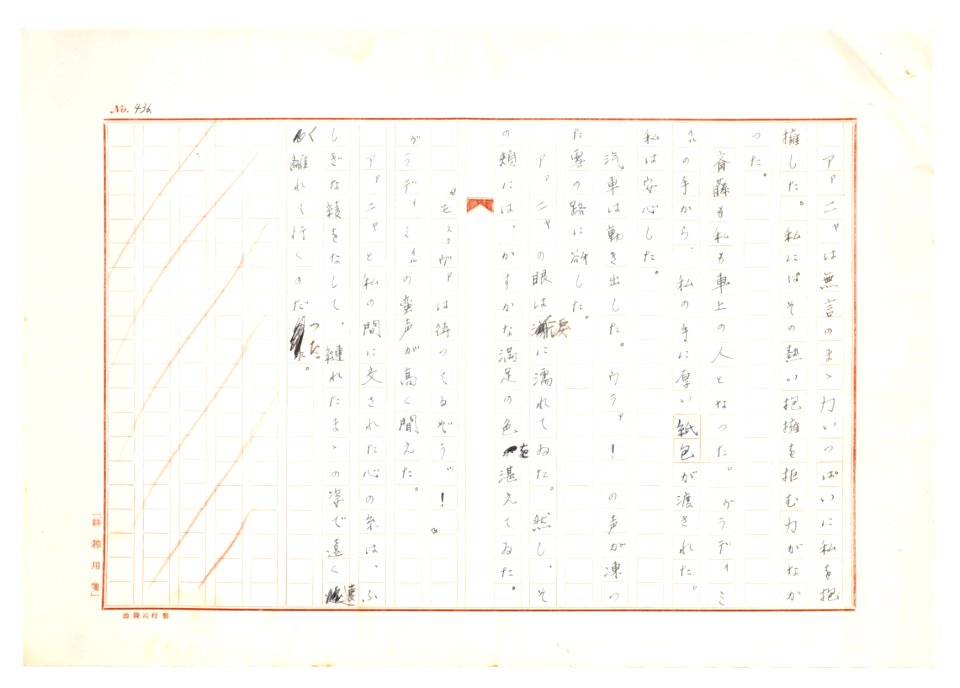 No. 936
アァニャは無言のまゝ力いつぱいに私を抱
擁した。私にはその熱い抱擁を拒む力がなか
つた。
斎藤も私も車上の人となつた。ヴラディミ
ルの手から、私の手に厚い紙包が渡された。
私は安心した。
汽車は動き出した。ウラァ！の声が凍つ
た雪の路に谺した。
アァニャの眼は涙に濡れてゐた。然し、そ
の頬には、かすかな満足の色を湛えてゐた。
〝モスクヴァは待つてるぞう〟！
ヴラディミルの蛮声が高く聞えた。
アァニャと私の間に交された心の糸は、ふ
しぎな綾をなして、縺れたまゝの姿で遠く遠
く離れて行くのだつた。
「耕 用箋」